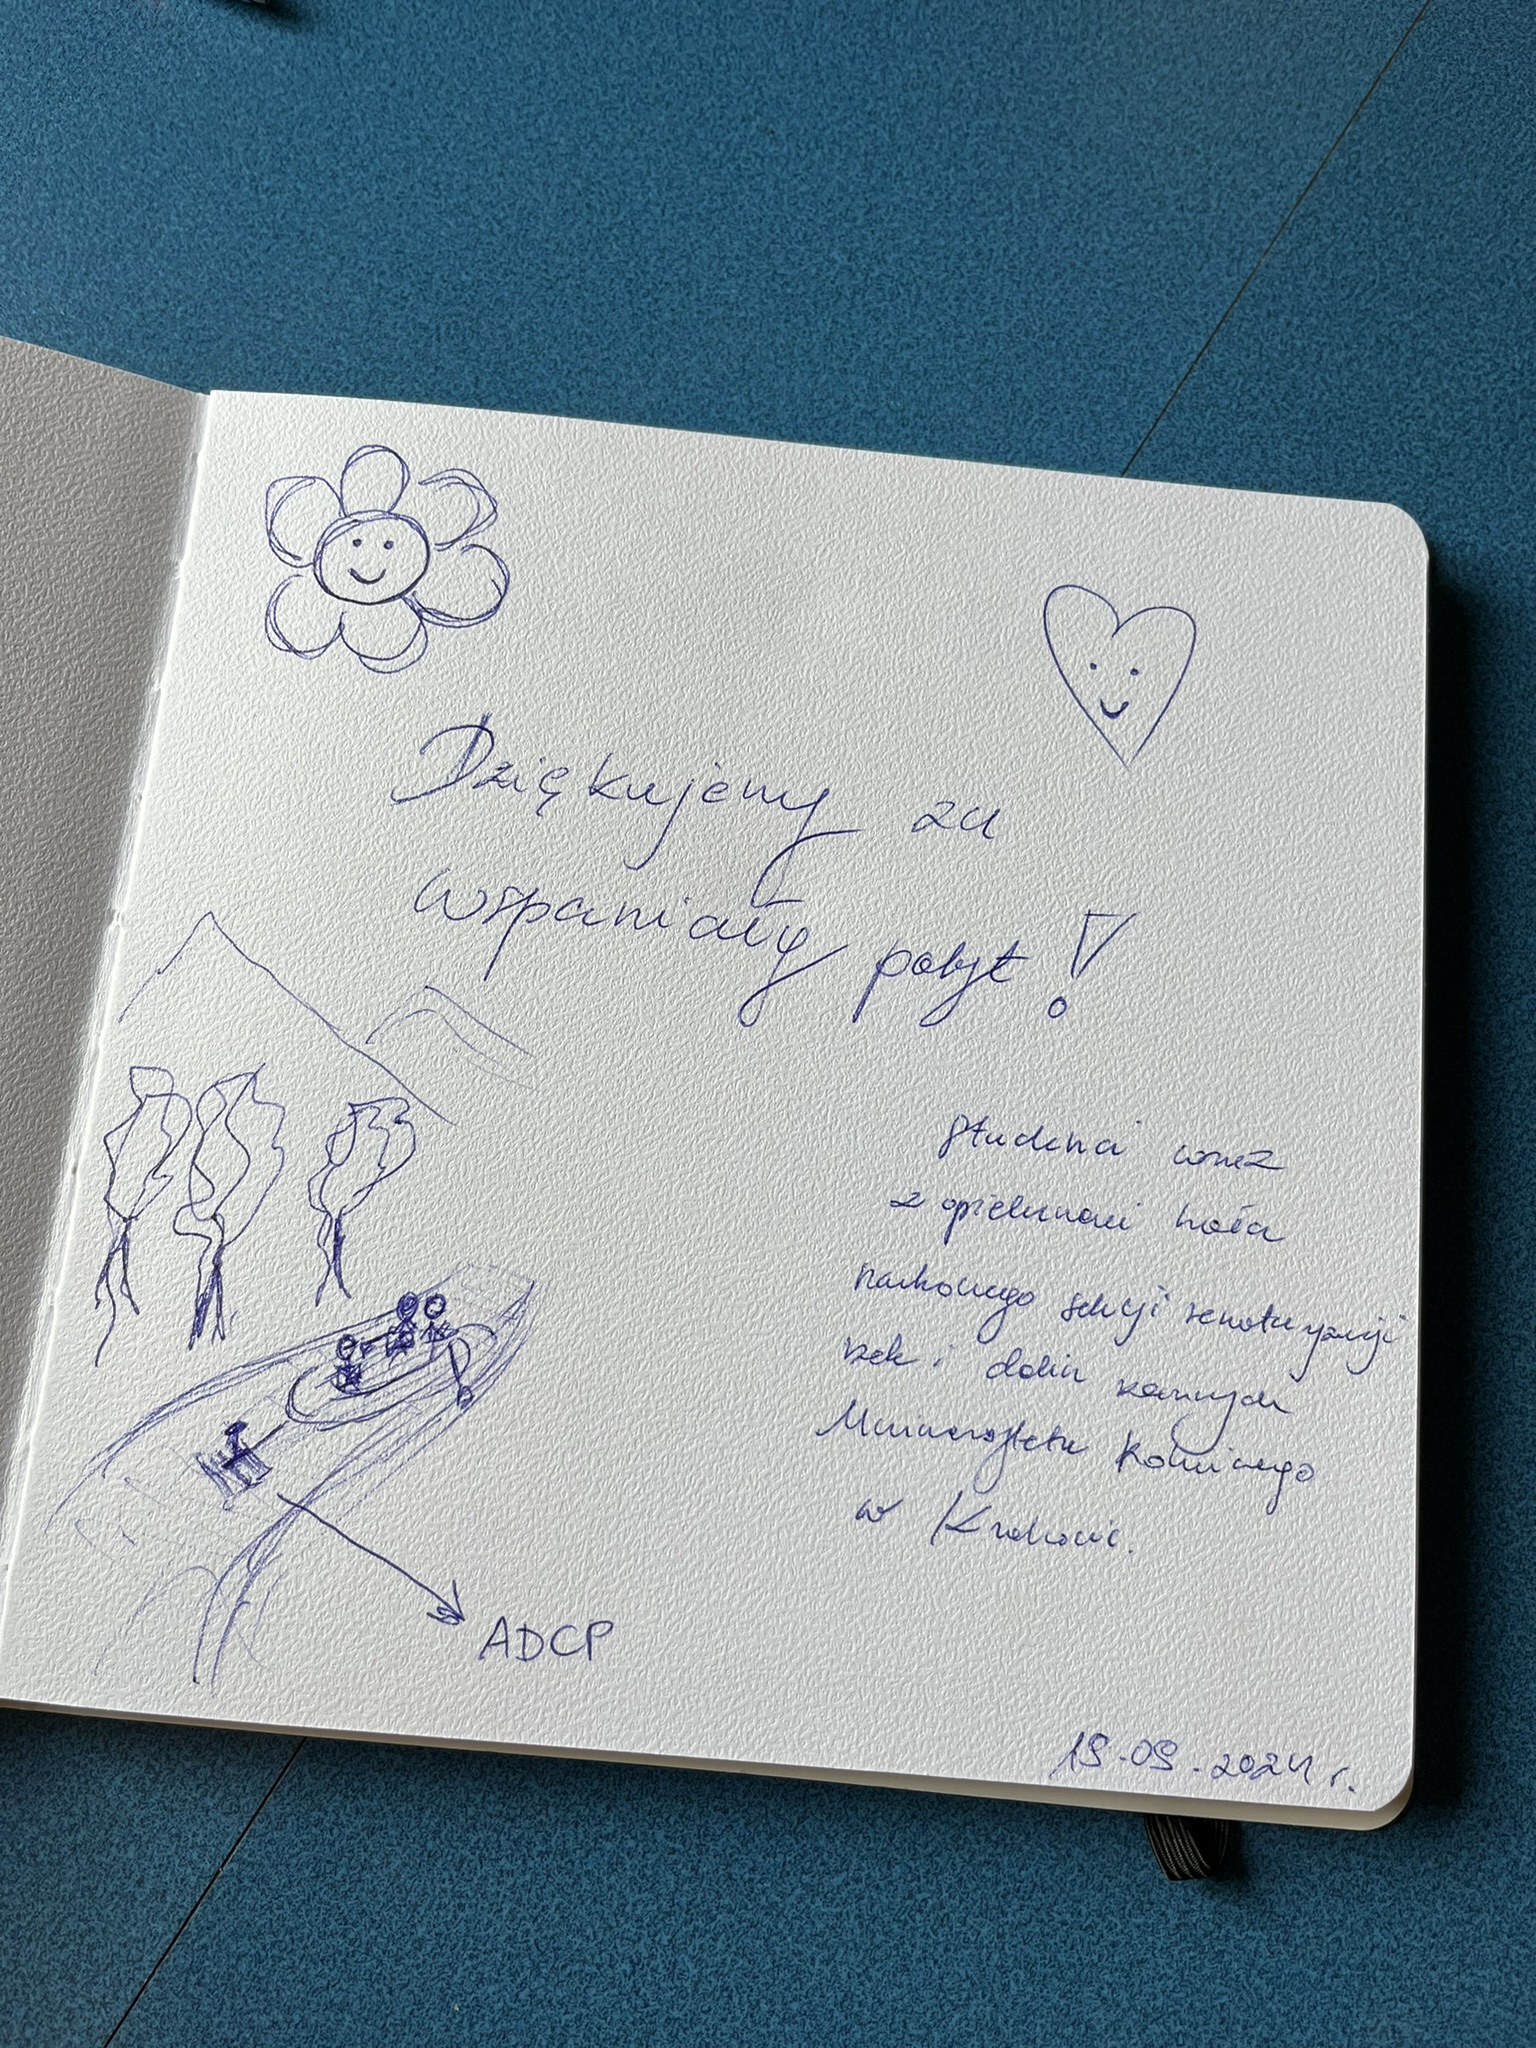 Dziękujemy za
wspaniały pobyt!
studenci wraz
z opiekunami koła
naukowego sekcji renaturyzacji
rzek i dolin rzecznych
Uniwersytetu Rolniczego
w Krakowie.
ADCP
19.09.2024 r.